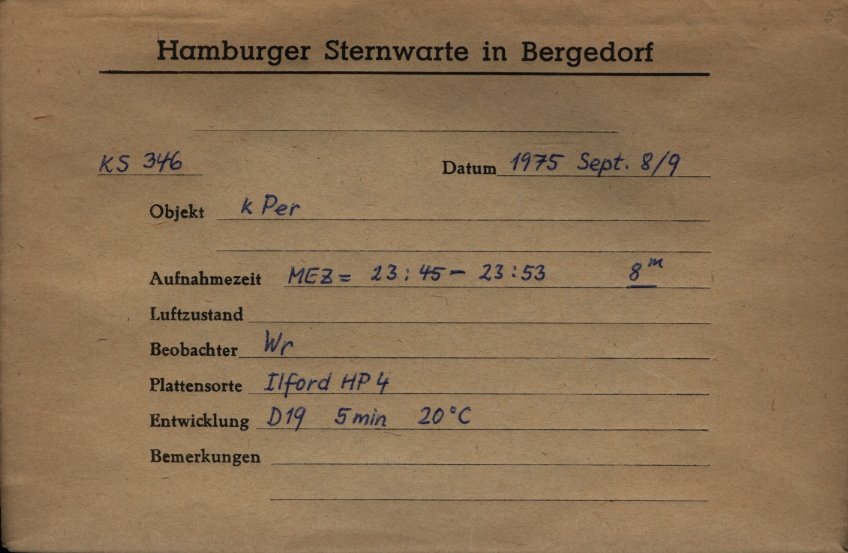 5
Hamburger Sternwarte in Bergedorf
KS 346 Datum 1975 Sept. 8/9
Objekt κ Per
Aufnahmezeit MEZ = 23:45 – 23:53 8ᵐ
Luftzustand
Beobachter Wr
Plattensorte Ilford HP4
Entwicklung D19 5 min 20°C
Bemerkungen